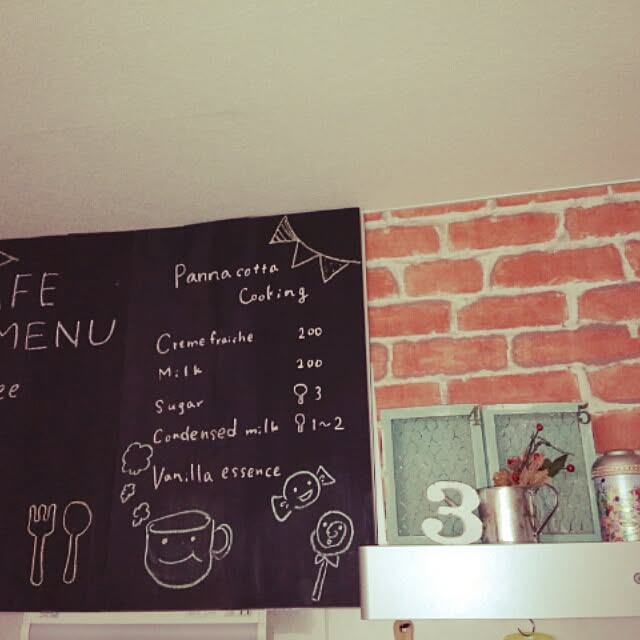 AFE
MENU
ee
Panna cotta
Cooking
Creme fraiche 200
Milk 200
Sugar 3
Condensed milk 1~2
Vanilla essence
4
5
3